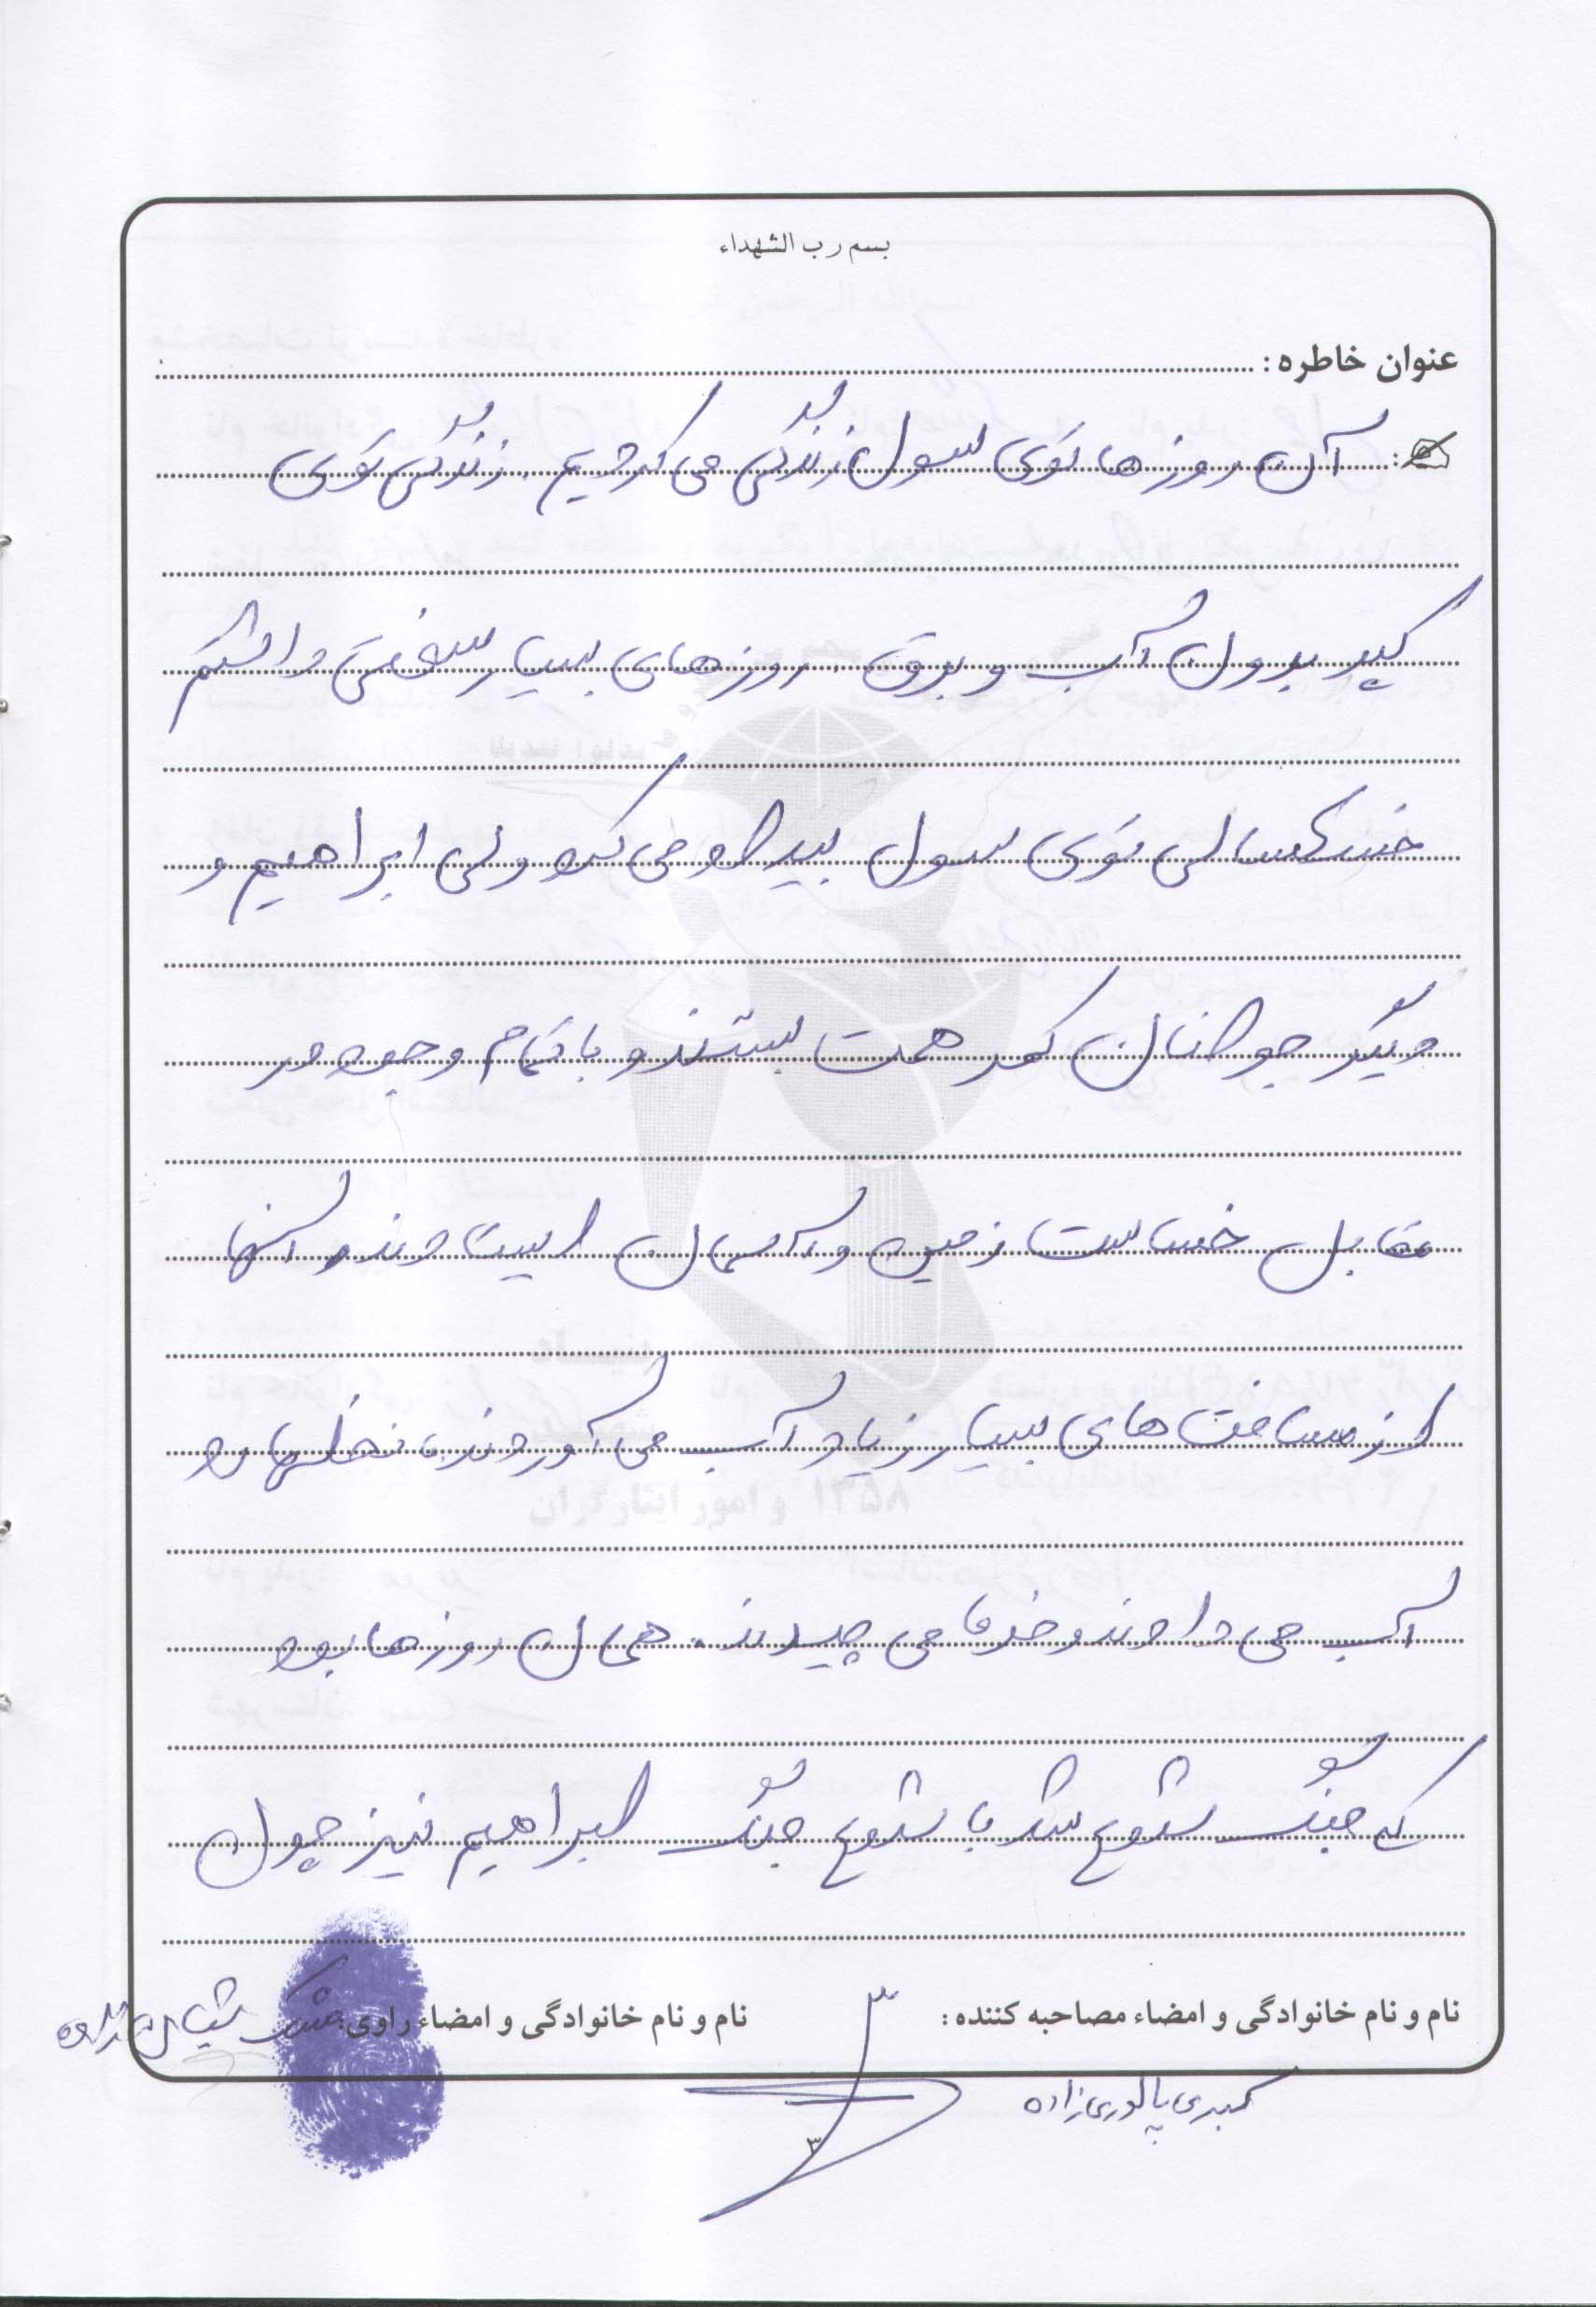 بسم رب الشهداء
عنوان خاطره :
آن روزها توی سول زندگی می کردیم . زندگی توی
کپر بدون آب و برق . روزهای بسیار سختی داشتیم
خشکسالی توی سول بیداد می کرد ولی ابراهیم و
دیگر جوانان کمر همت بستند و با تمام وجود در
مقابل خساست زمین و آسمان ایستادند و آنها
از مسافت های بسیار زیاد آب می آوردند به نخلها
آب می دادند و خرما می چیدند . همان روزها بود
که جنگ شروع شد با شروع جنگ ابراهیم نیز چون
نام و نام خانوادگی و امضاء مصاحبه کننده :
نام و نام خانوادگی و امضاء راوی:
کبری پالوری زاده
۳